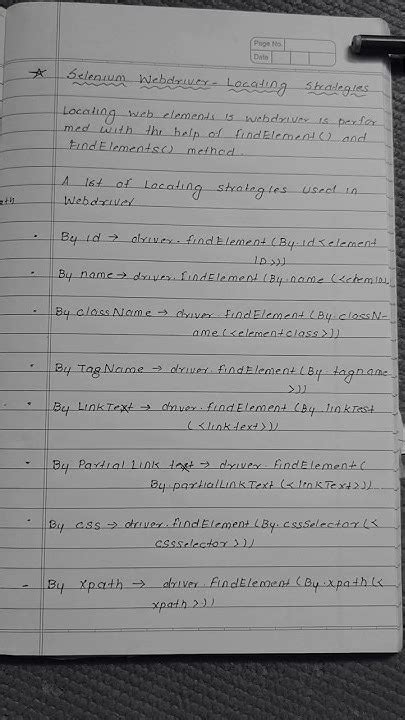 Page No.
Date
☆ Selenium Webdriver - Locating Strategies
Locating web elements is webdriver is perfor
med with the help of findElement() and
FindElements() method.
A list of Locating strategies used in
Webdriver
• By id → driver.findElement (By.id<element
ID>))
• By name → driver.findElement (By.name (<
• By className → driver.findElement (By.classN-
ame(<elementclass>))
• By TagName → driver.findElement (By.tagname
>))
• By LinkText → driver.findElement (By.linkTest
(<linktext>))
• By Partial Link text → driver.findElement(
By.partialLinkText (<linkText>))
• By css → driver.findElement (By.cssSelector(<
cssselector>))
- By xpath → driver.findElement (By.xpath(<
xpath>))